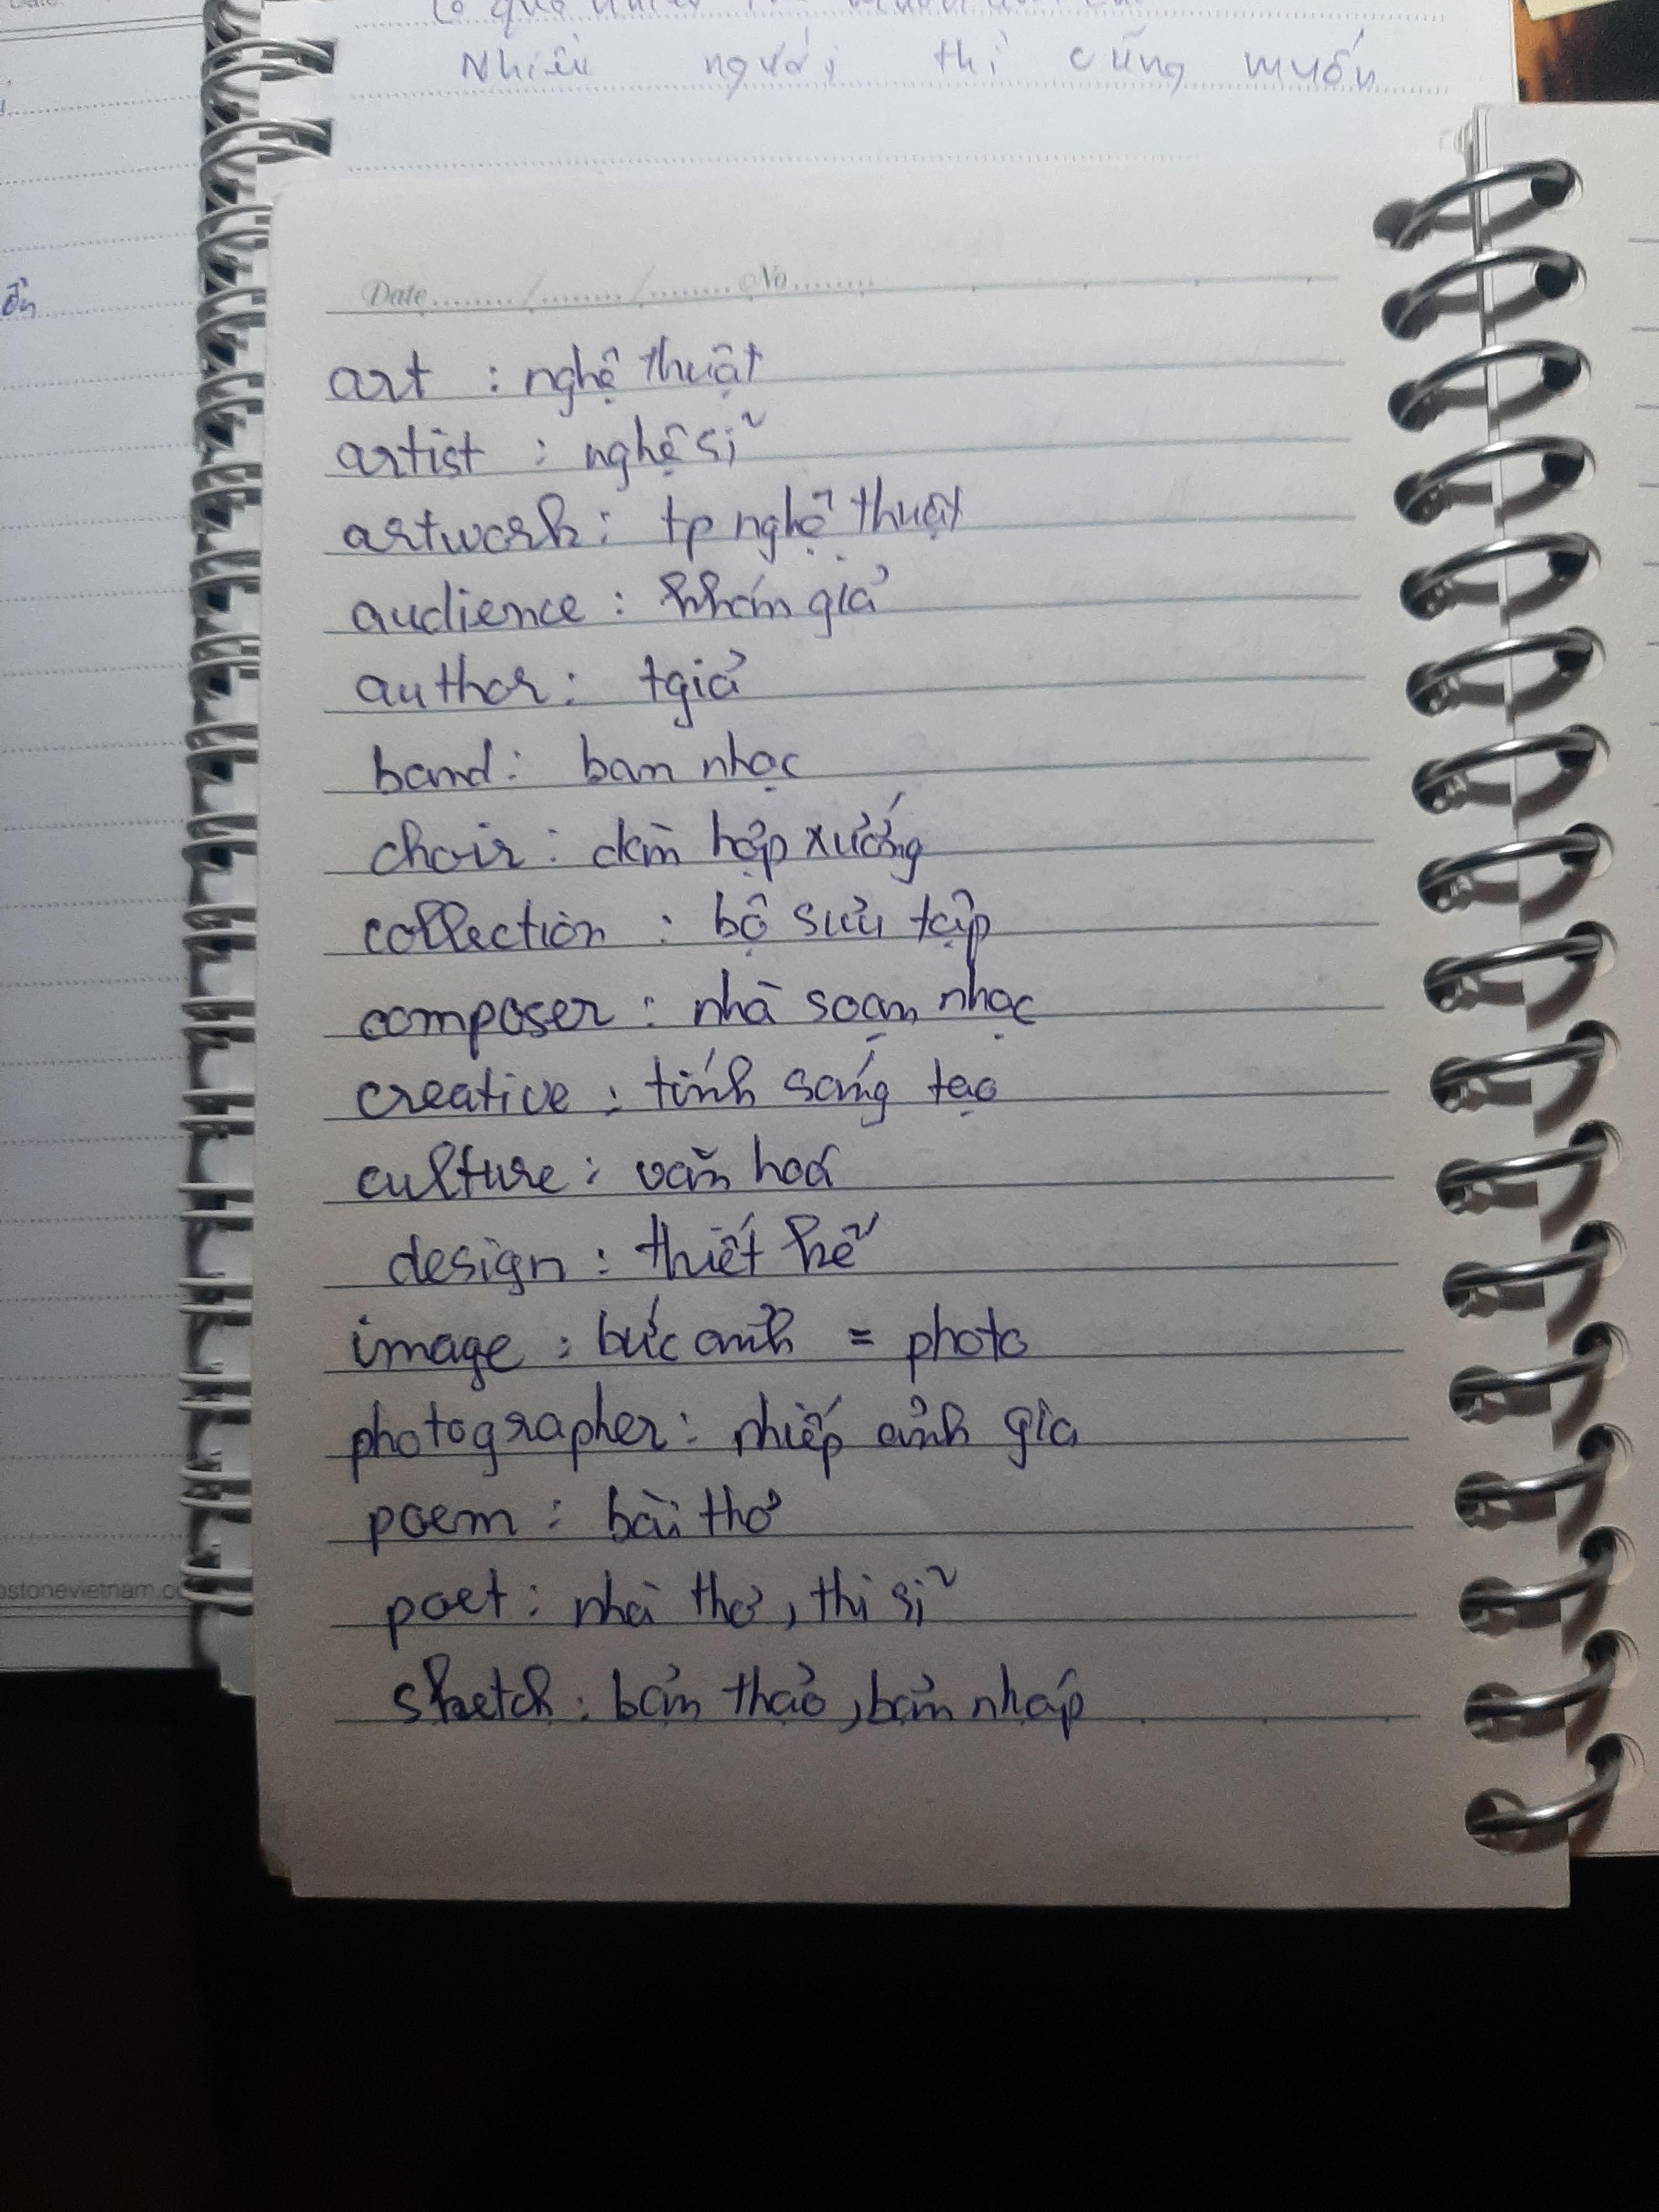 Nhiều người thì cũng muốn
Date ......../......../........ No ........
art : nghệ thuật
artist : nghệ sĩ
artwork : tp nghệ thuật
audience : khán giả
author : tgiả
band : ban nhạc
choir : dàn hợp xướng
collection : bộ sưu tập
composer : nhà soạn nhạc
creative : tính sáng tạo
culture : văn hoá
design : thiết kế
image : bức ảnh = photo
photographer : nhiếp ảnh gia
poem : bài thơ
poet : nhà thơ, thi sĩ
sketch : bản thảo, bản nháp